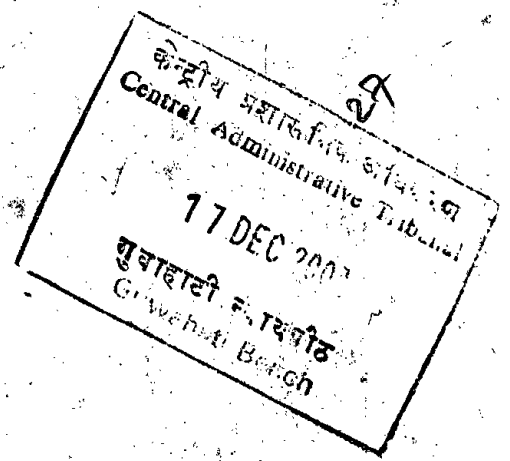 केन्द्रीय
Central Administrative Tribunal
17 DEC
गुवाहाटी न्यायपीठ
Guwahati Bench